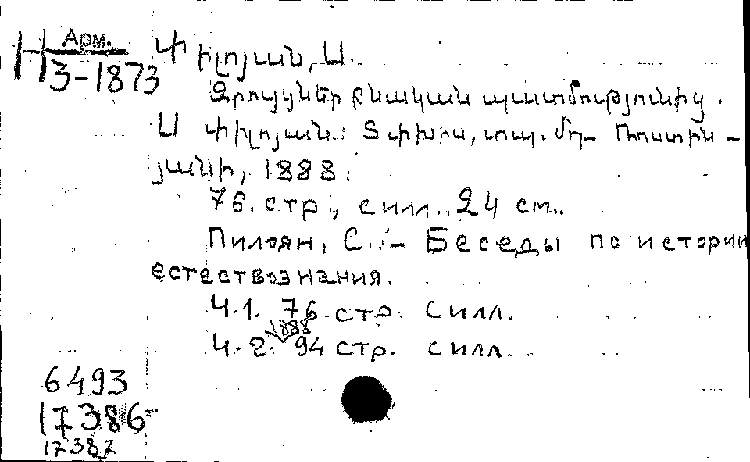 Арм.
Н 3-1873
Փիլոյան, Ս.
Զրույցներ բնական պատմությունից.
Ս Փիլոյան. Տփխիս, տպ. Մ.
յանի, 1888.
76 стр, с илл. 24 см.
Пилоян, С. – Беседы по истории
естествознания.
Ч. 1. 76 стр. с илл.
1888
Ч. 2. 94 стр. с илл.
6493
17386
17387